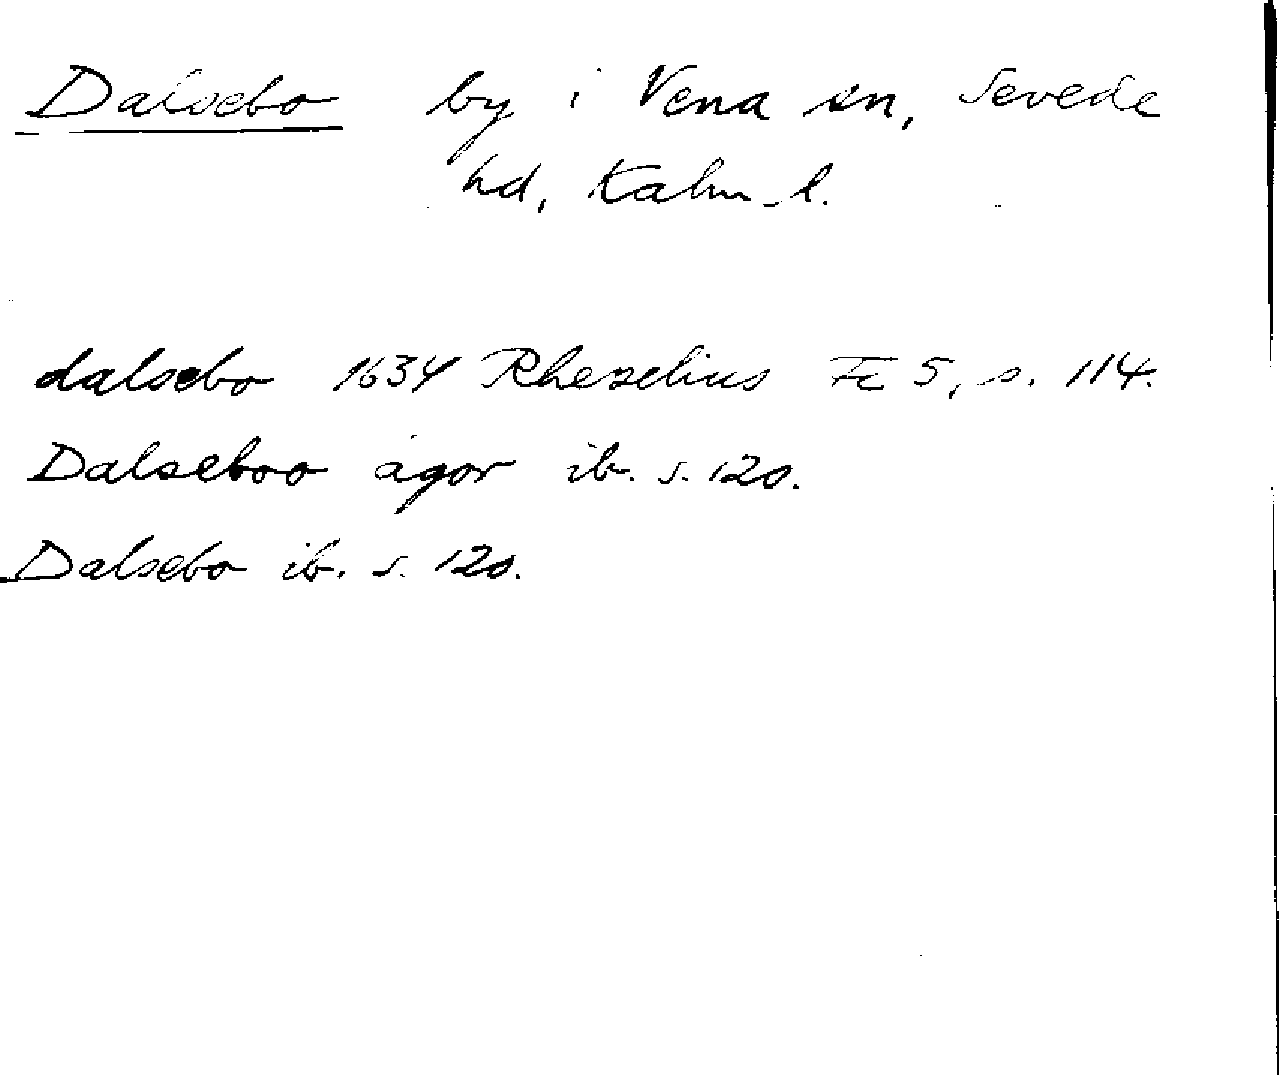 Dalsebo by i Vena sn, Sevede
hd, Kalm. l.
dalsebo 1634 Rhezelius Fc 5, s. 114.
Dalseboo ägor ib. s. 120.
Dalsebo ib. s. 120.